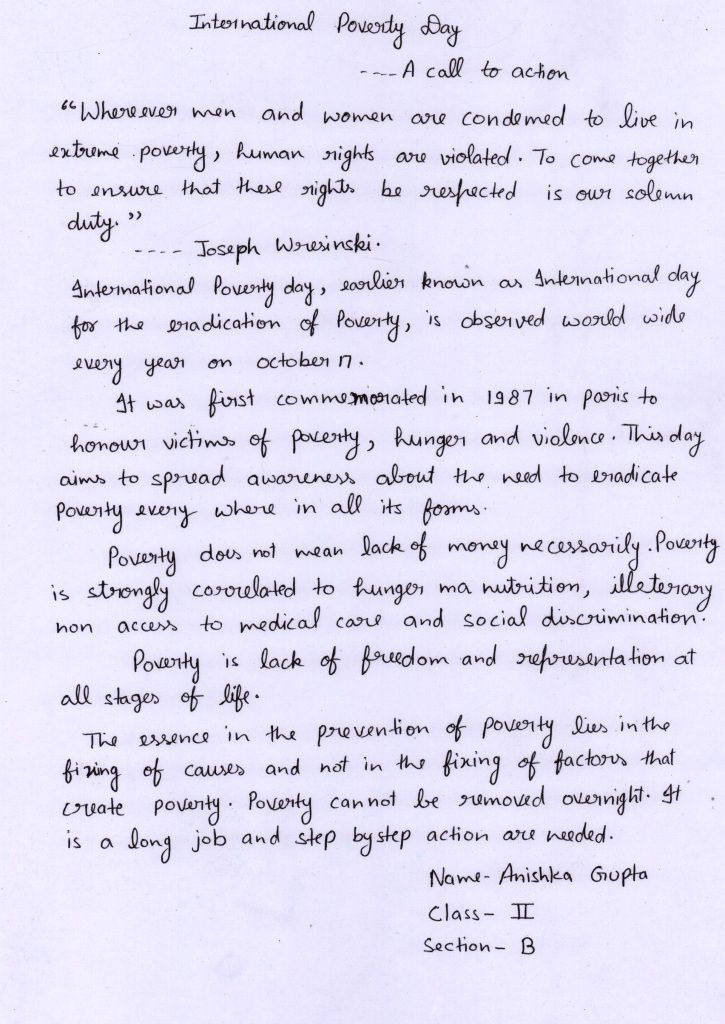 International Poverty Day
---- A call to action
"Whereever men and women are condemed to live in
extreme poverty, human rights are violated. To come together
to ensure that these rights be respected is our solemn
duty."
---- Joseph Wresinski.
International Poverty day, earlier known as International day
for the eradication of Poverty, is observed world wide
every year on october 17.
It was first commemorated in 1987 in paris to
honour victims of poverty, hunger and violence. This day
aims to spread awareness about the need to eradicate
Poverty every where in all its forms.
Poverty does not mean lack of money necessarily. Poverty
is strongly correlated to hunger ma nutrition, illeterary
non access to medical care and social discrimination.
Poverty is lack of freedom and representation at
all stages of life.
The essence in the prevention of poverty lies in the
fixing of causes and not in the fixing of factors that
create poverty. Poverty cannot be removed overnight. It
is a long job and step by step action are needed.
Name- Anishka Gupta
Class- II
Section- B